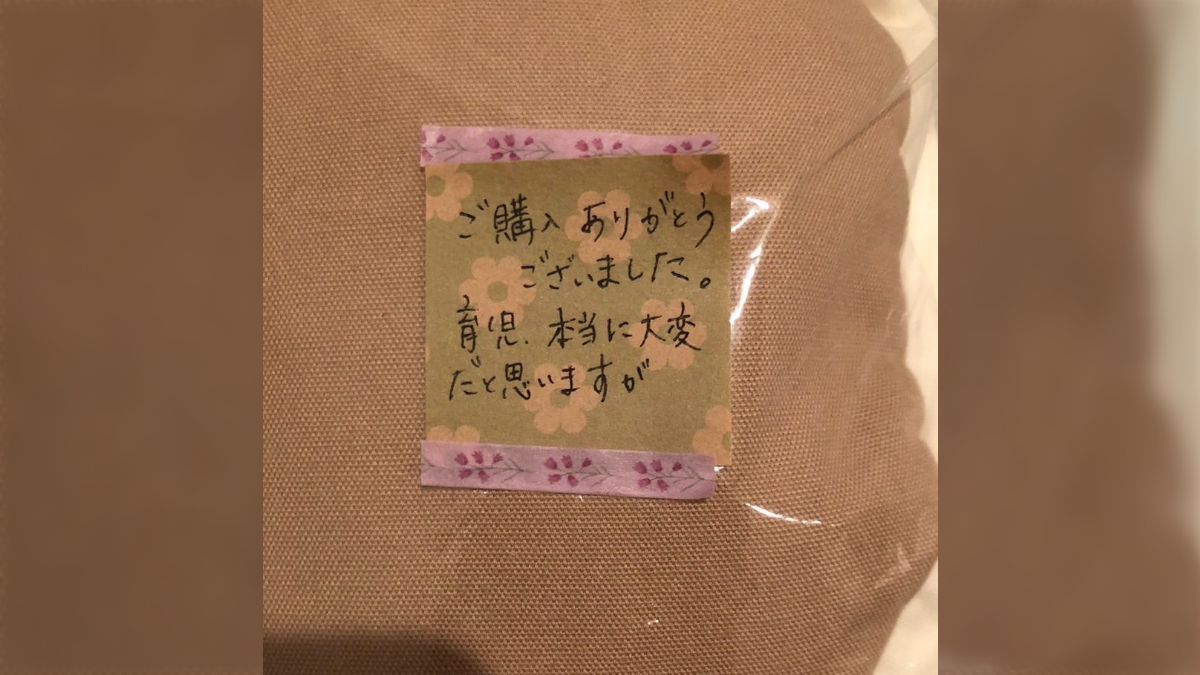 ご購入ありがとう
ございました。
育児、本当に大変
だと思いますが